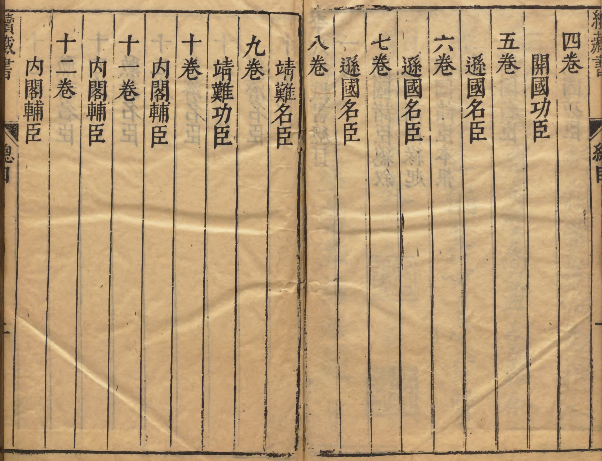 四卷
開國功臣
五卷
遜國名臣
六卷
遜國名臣
七卷
遜國名臣
八卷
靖難名臣
九卷
靖難功臣
十卷
内閣輔臣
十一卷
内閣輔臣
十二卷
内閣輔臣
續藏書
總目